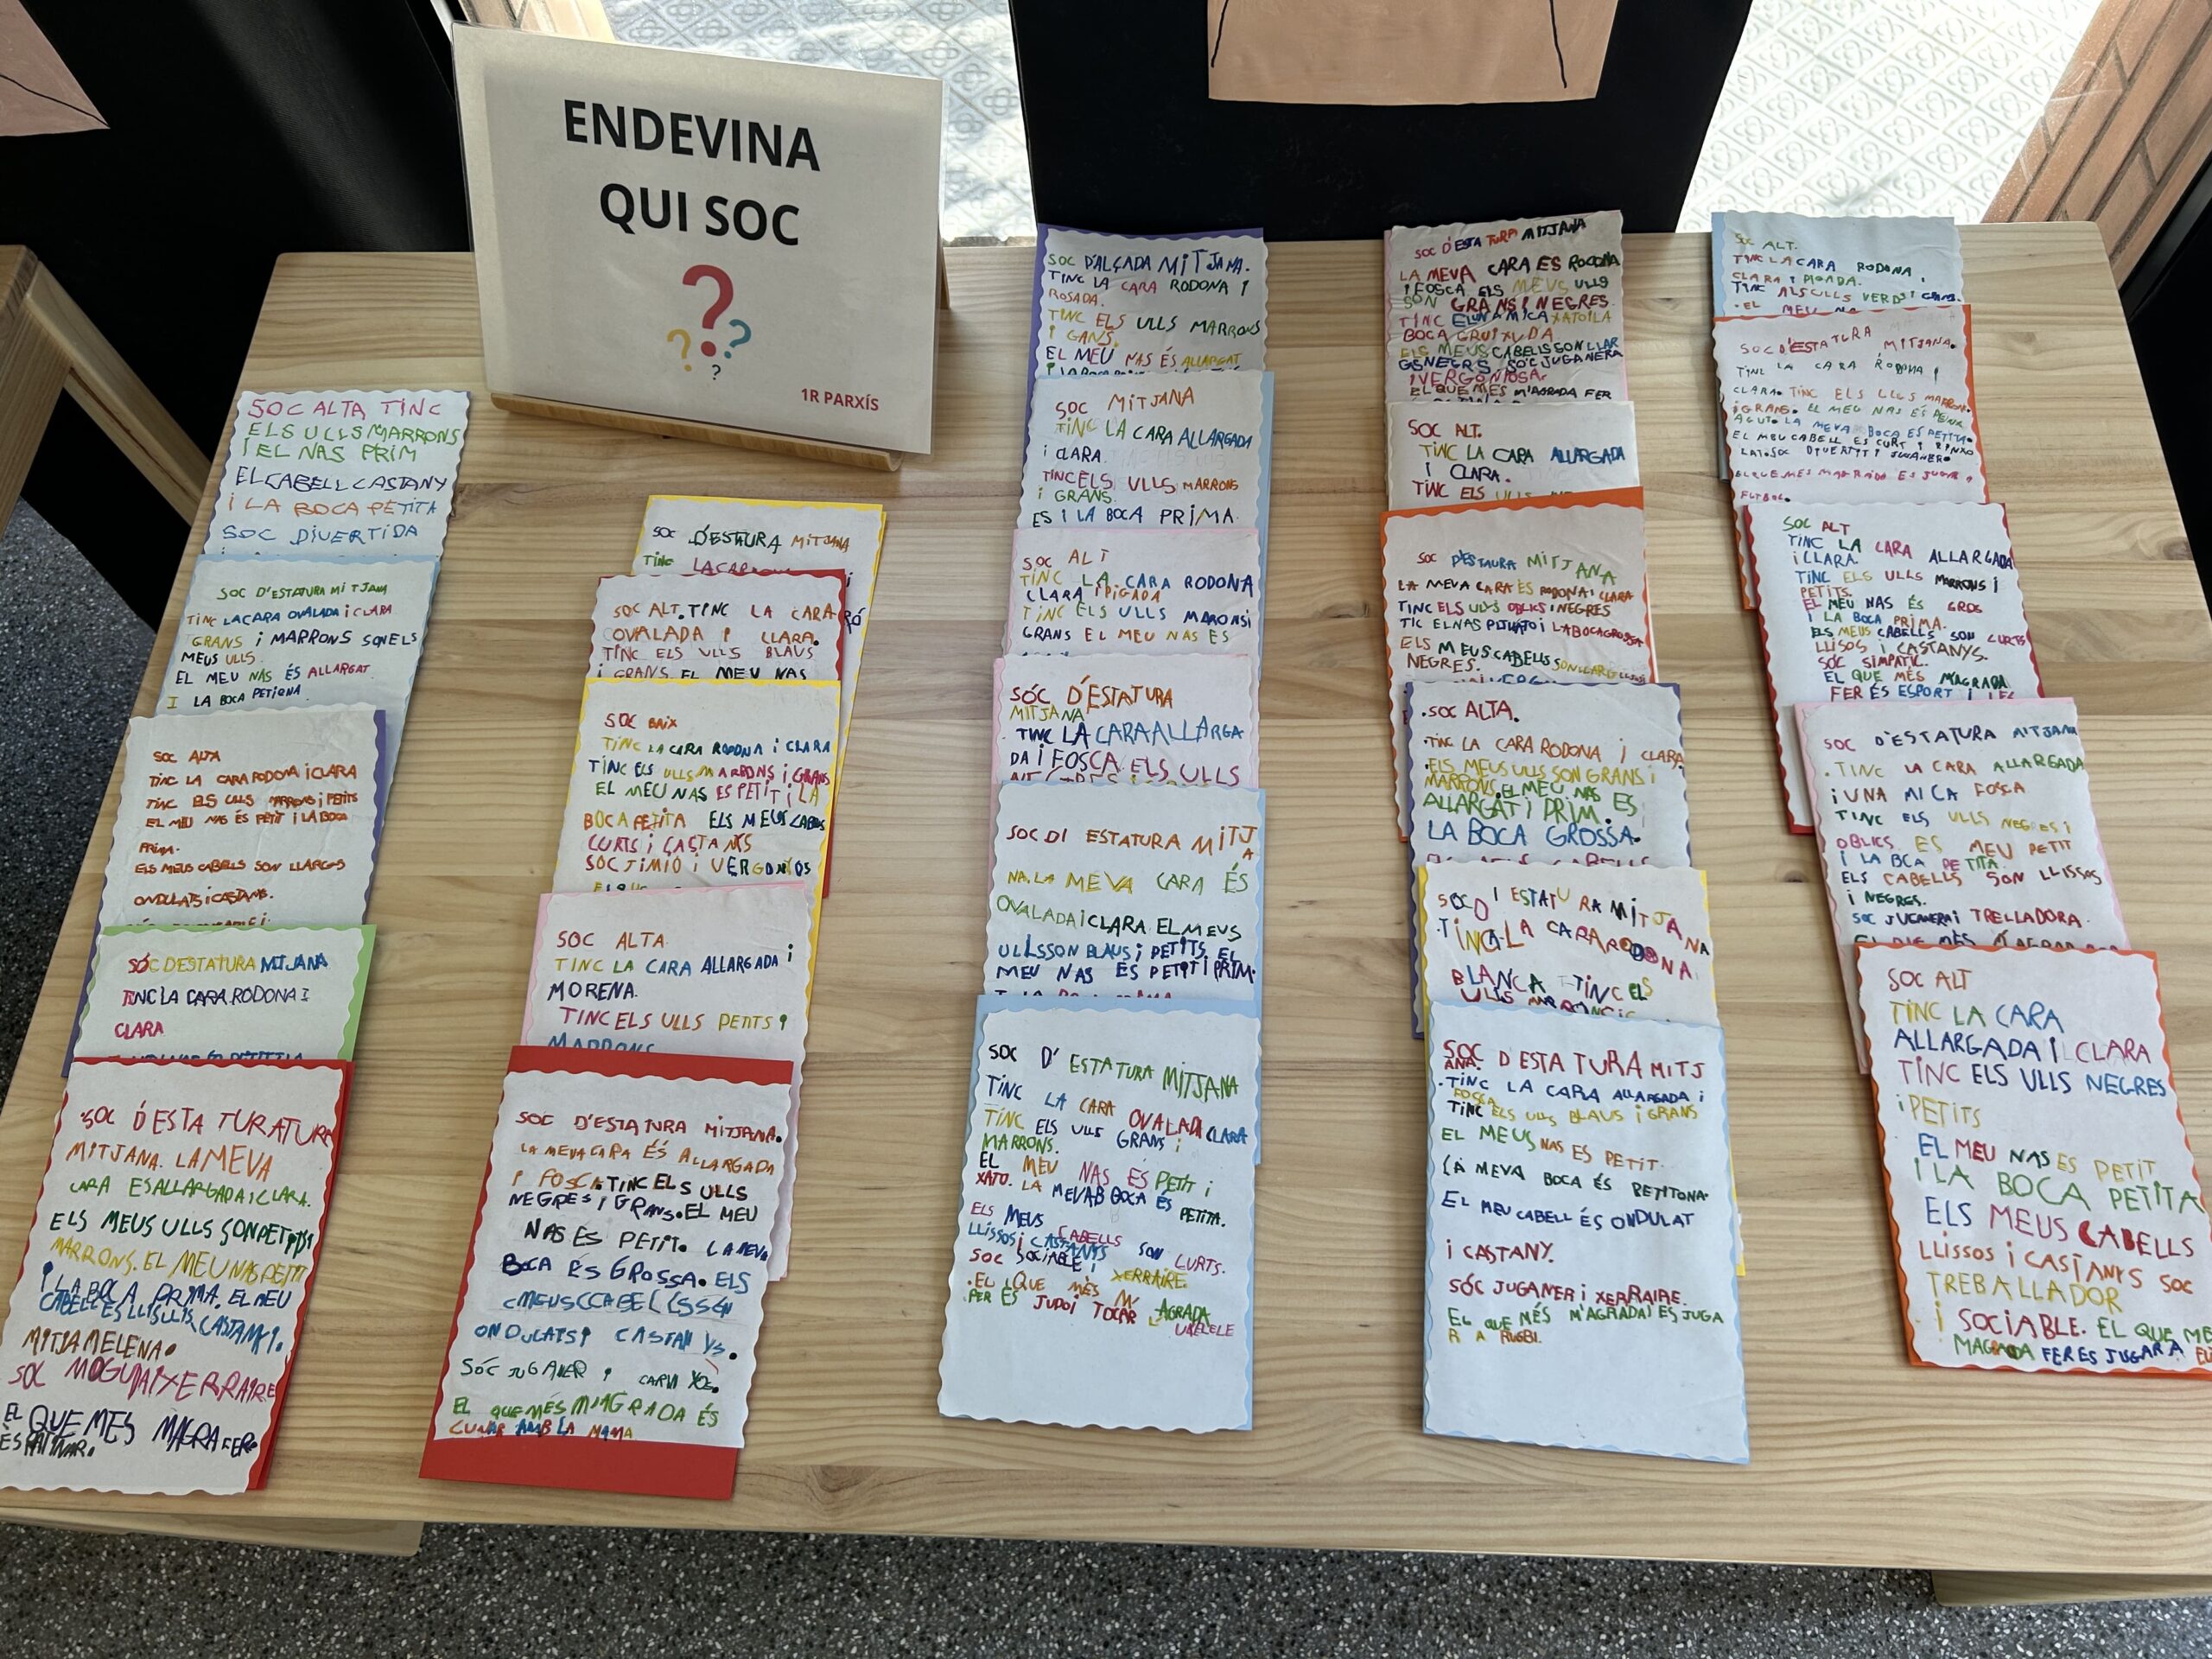 ENDEVINA
QUI SOC
?
? ?
?
1R PARXÍS
SOC ALTA TINC
ELS ULLS MARRONS
I EL NAS PRIM
EL CABELL CASTANY
i LA BOCA PETITA
SOC DIVERTIDA
SOC D'ESTATURA MITJANA
TINC LA CARA OVALADA i CLARA
GRANS i MARRONS SON ELS
MEUS ULLS.
EL MEU NAS ÉS ALLARGAT
I LA BOCA PETIONA
SOC ALTA
TINC LA CARA RODONA i CLARA
TINC ELS ULLS MARRONS i PETITS
EL MEU NAS ÉS PETIT i LA BOCA
PRIMA.
ELS MEUS CABELLS SON LLARGS
ONDULATS i CASTANS.
SÓC DESTATURA MITJANA
TINC LA CARA RODONA I
CLARA
SOC D'ESTA TURATURA
MITJANA. LA MEVA
CARA ES ALLARGADA i CLARA.
ELS MEUS ULLS SON PETITS i
MARRONS. EL MEU NAS PETIT
i LA BOCA PRIMA. EL MEU
CABELL ES CASTANY i.
MITJA MELENA.
SOC XERRAIRE
EL QUE MES MAGRA FER
ES PATINAR.
SOC D'ESTAURA MITJANA
TINC
SOC ALT. TINC LA CARA
OVALADA i CLARA.
TINC ELS ULLS BLAUS
i GRANS. EL MEU NAS
SOC BAIX
TINC LA CARA RODONA i CLARA
TINC ELS ULLS MARRONS i GRANS
EL MEU NAS ES PETIT i LA
BOCA PETITA ELS MEUS CABELLS
CURTS i CASTANYS
SOC JIMIO i VERGONYOS
SOC ALTA
TINC LA CARA ALLARGADA i
MORENA.
TINC ELS ULLS PETITS i
MARRONS
SOC D'ESTATURA MITJANA.
LA MEVA CARA ÉS ALLARGADA
i FOSCA. TINC ELS ULLS
NEGRES i GRANS. EL MEU
NAS ES PETIT. LA MEVA
BOCA ÉS GROSSA. ELS
ONDULATS i CASTANYS.
SÓC JUGANER i CARINYOS.
EL QUE MÉS M'AGRADA ÉS
CUINAR AMB LA MAMA
SOC D'ALÇADA MITJANA.
TINC LA CARA RODONA I
ROSADA.
TINC ELS ULLS MARRONS
I GANS.
EL MEU NAS ÉS ALLARGAT
SOC MITJANA
TINC LA CARA ALLARGADA
i CLARA.
TINC ELS ULLS MARRONS
i GRANS.
ES I LA BOCA PRIMA.
SOC ALT
TINC LA CARA RODONA
CLARA i PIGADA
TINC ELS ULLS MARONSI
GRANS EL MEU NAS ES
SÓC D'ESTATURA
MITJANA
TINC LA CARA ALLARGA
DA i FOSCA ELS ULLS
SOC DI ESTATURA MITJ
A
NA. LA MEVA CARA ÉS
OVALADA i CLARA. EL MEUS
ULLS SON BLAUS i PETITS. EL
MEU NAS ÉS PETIT I PRIM.
SOC D' ESTATURA MITJANA
TINC LA CARA OVALADA CLARA
TINC ELS ULLS GRANS i
MARRONS.
EL MEU NAS ÉS PETIT i
XATO. LA MEVAB BOCA ÉS PETITA.
ELS MEUS CABELLS SON CURTS.
LLISSOS i CASTANYS
SOC SOCIABLE i XERRAIRE
.EL QUE MÉS M' AGRADA
FER ES JUDO i TOCAR L'UKELELE
SOC D'ESTA TURA MITJANA
LA MEVA CARA ES RODONA
i FOSCA ELS MEUS ULLS
SON GRANS I NEGRES.
TINC EL UNA MICA XATO i LA
BOCA GRUIXUDA
ELS MEUS CABELLS SON LLAR
GS NEGRS. SÓC JUGANERA
I VERGONIOSA.
EL QUE MES M'AGRADA FER
SOC ALT.
TINC LA CARA ALLARGADA
I CLARA.
TINC ELS ULLS
SOC D'ESTAURA MITJANA
LA MEVA CARA ÉS RODONA i CLARA
TINC ELS ULLS OBLICS i NEGRES
TIC EL NAS PUNXUT i LA BOCA GROSSA
ELS MEUS CABELLS SON LLARG I LLISOS
NEGRES.
.SOC ALTA.
.TINC LA CARA RODONA i CLARA.
.ELS MEUS ULLS SON GRANS i
MARRONS. EL MEU NAS ES
ALLARGAT i PRIM.
LA BOCA GROSSA.
SOC D'ESTATURA MITJANA
.TINC LA CARA RODONA
BLANCA TINC ELS
ULLS MARRONS i
SOC D'ESTA TURA MITJ
ANA.
.TINC LA CARA ALLARGADA i
FOSCA
TINC ELS ULLS BLAUS i GRANS
EL MEUS NAS ES PETIT.
LA MEVA BOCA ÉS PETITONA.
EL MEU CABELL ÉS ONDULAT
i CASTANY.
SÓC JUGANER i XERRAIRE.
EL QUE MÉS M'AGRADAI ES JUGA
R A RUGBI.
SOC ALT.
TINC LA CARA RODONA,
CLARA i PIGADA.
TINC ALS ULLS VERDS I CLARS.
.EL MEU NA
SOC D'ESTATURA MITJANA.
TINC LA CARA RODONA i
CLARA. TINC ELS ULLS MARRONS
i GRANS. EL MEU NAS ÉS
AGUT. LA MEVA BOCA ES PETITA.
EL MEU CABELL ES CURT I PINXO
LAT. SOC DIVERTIT i JUGANER.
EL QUE MES MAGRADA ES JUGAR A
FUTBOL.
SOC ALT
TINC LA CARA ALLARGADA
i CLARA.
TINC ELS ULLS MARRONS i
PETITS.
EL MEU NAS ÉS GROS
i LA BOCA PRIMA.
ELS MEUS CABELLS SON CURTS
LLISOS i CASTANYS.
SÓC SIMPATIC.
EL QUE MÉS MAGRADA
FER ÉS ESPORT i
SOC D'ESTATURA MITJANA
.TINC LA CARA ALLARGADA
i UNA MICA FOSCA
TINC ELS ULLS NEGRES i
OBLICS. ES MEU PETIT
i LA BCA PETITA.
ELS CABELLS SON LLISSOS
i NEGRES.
SOC JUGANERA i TRELLADORA.
SOC ALT
TINC LA CARA
ALLARGADA I CLARA
TINC ELS ULLS NEGRES
i PETITS
EL MEU NAS ES PETIT
I LA BOCA PETITA
ELS MEUS CABELLS
LLISSOS i CASTANYS SOC
TREBALLADOR
i SOCIABLE. EL QUE ME
MAGRADA FER ES JUGAR A